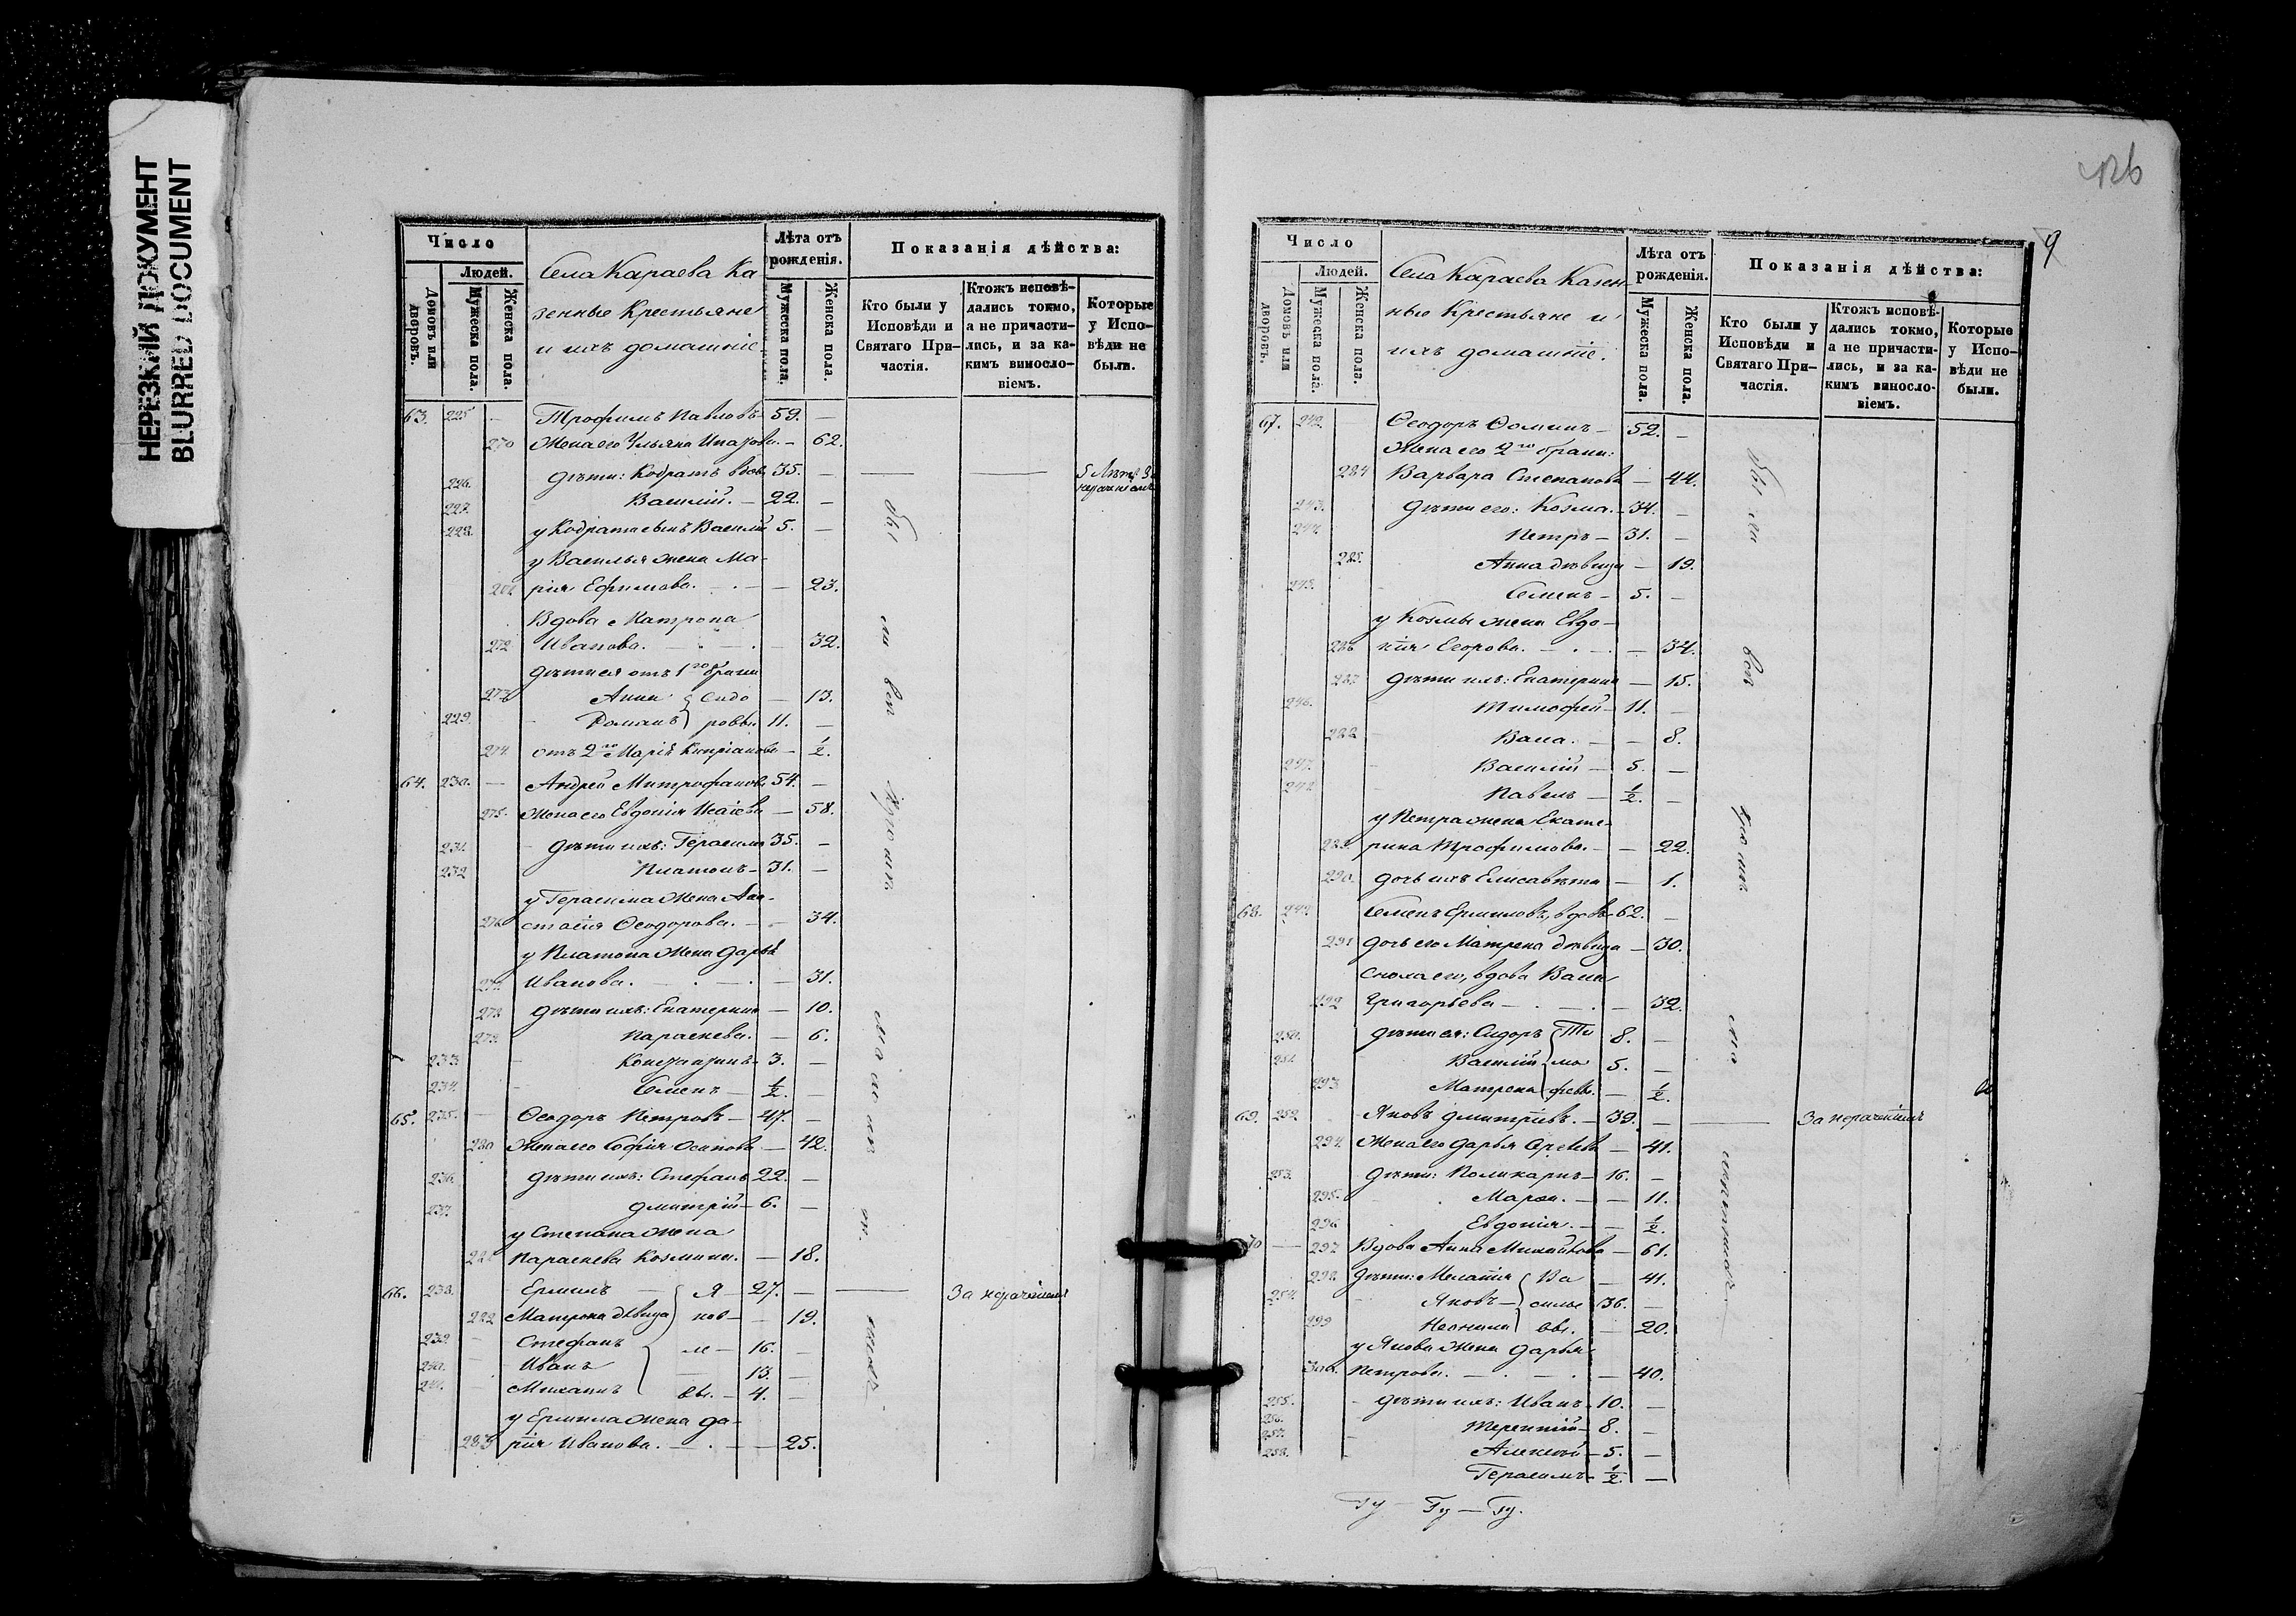 НЕРЕЗКИЙ ДОКУМЕНТ
BLURRED DOCUMENT
Число
Людей.
Домовъ или дворовъ.
Мужеска пола.
Женска пола.
Села Караева Ка-
зенные Крестьяне
и ихъ домашніе
Лѣта отъ рожденія.
Мужеска пола.
Женска пола.
Показанія дѣйства:
Кто были у Исповѣди и Святаго При-частія.
Ктожъ исповѣ-дались токмо, а не причасти-лись, и за ка-кимъ винносло-віемъ.
Которые у Испо-вѣди не были.
63. 225 — Трофимъ Павловъ — 59. —
270 Жена его Ульяна — 62.
226. дѣти: Кодратъ вдов. 35. —
227. Василій. — 22. —
228. у Кодрата сынъ Василій 5. —
у Василья жена Ма-
рія Ефимова. — 23.
Вдова Матрона
272 Иванова. — 32.
дѣти ея отъ 1го брака
273 Анна Сидо — 13.
229. Романъ ровы. 11. —
274. отъ 2го Марія — ½
64. 230. — Андрей Митрофановъ 54. —
275. Жена его Евдокія Исаіева — 58.
231. дѣти ихъ: Герасимъ 35. —
232 Платонъ — 31. —
у Герасима жена Ана-
276 стасія Ѳеодорова. — 34.
у Платона жена Дарья
Иванова. — 31.
278 дѣти ихъ: Екатерина — 10.
279. Параскева. — 6.
233 3. —
234. Семенъ — ½ —
65. 235. — Ѳеодоръ Петровъ — 47. —
280 Жена его Софія Осипова — 42.
236. дѣти ихъ: Стефанъ 22. —
237. Дмитрій — 6. —
у Степана жена
Параскева Козмина. — 18.
66. 238. Ермилъ Я 27. — За нераченіемъ
Матрона дѣвица ков — 19.
239. Стефанъ ле — 16. —
240. Иванъ 13. —
241. Михаилъ вы. — 4. —
у Ермила жена Да-
283 рія Иванова. — 25.
126
9
Число
Людей.
Домовъ или дворовъ.
Мужеска пола.
Женска пола.
Села Караева Казен-
ные Крестьяне и
ихъ домашніе.
Лѣта отъ рожденія.
Мужеска пола.
Женска пола.
Показанія дѣйства:
Кто были у Исповѣди и Святаго При-частія.
Ктожъ исповѣ-дались токмо, а не причасти-лись, и за ка-кимъ винносло-віемъ.
Которые у Испо-вѣди не были.
67. 242. Ѳеодоръ Ѳоминъ — 52. —
Жена его 2го брака:
284 Варвара Степанова — 44.
243. дѣти его: Козма. — 34. —
244. Петръ — 31. —
285. Анна дѣвица — 19.
245. Семенъ — 5. —
у Козмы жена Евдо-
286 кія Егорова. — 34.
287 дѣти ихъ: Екатерина — 15.
246. Тимофей — 11. —
288 Васа. — 8.
247. Василій — 5. —
248 Павелъ — ½. —
у Петра жена Екате-
289. рина Трофимова. — 22.
290. дочь ихъ Елисавета — 1.
68. 249. Семенъ Ермиловъ, вдовъ 62. —
291 дочь его Матрена дѣвица — 30.
сноха его, вдова Васса
292 Григорьева — 32.
250. дѣти ея: Сидоръ Ти 8. —
251. Василій мо 5. —
293 Матрена феевы. — ½.
69. 252. Яковъ Дмитріевъ. — 39. — За нераченіемъ
294. Жена его Дарья — 41.
253. дѣти: Поликарпъ — 16. —
295. — 11.
296 Евдокія. — ½.
70 — 297 Вдова Анна Михайлова — 61.
298 дѣти: Меланія Ва — 41.
254. Яковъ — силье 36. —
299 Неонила вы. — 20.
у Якова жена Дарья
300. Петрова. — 40.
255. дѣти ихъ: Иванъ 10. —
256. Терентій 8. —
257. Алексѣй — 5. —
258. Герасимъ ½. —